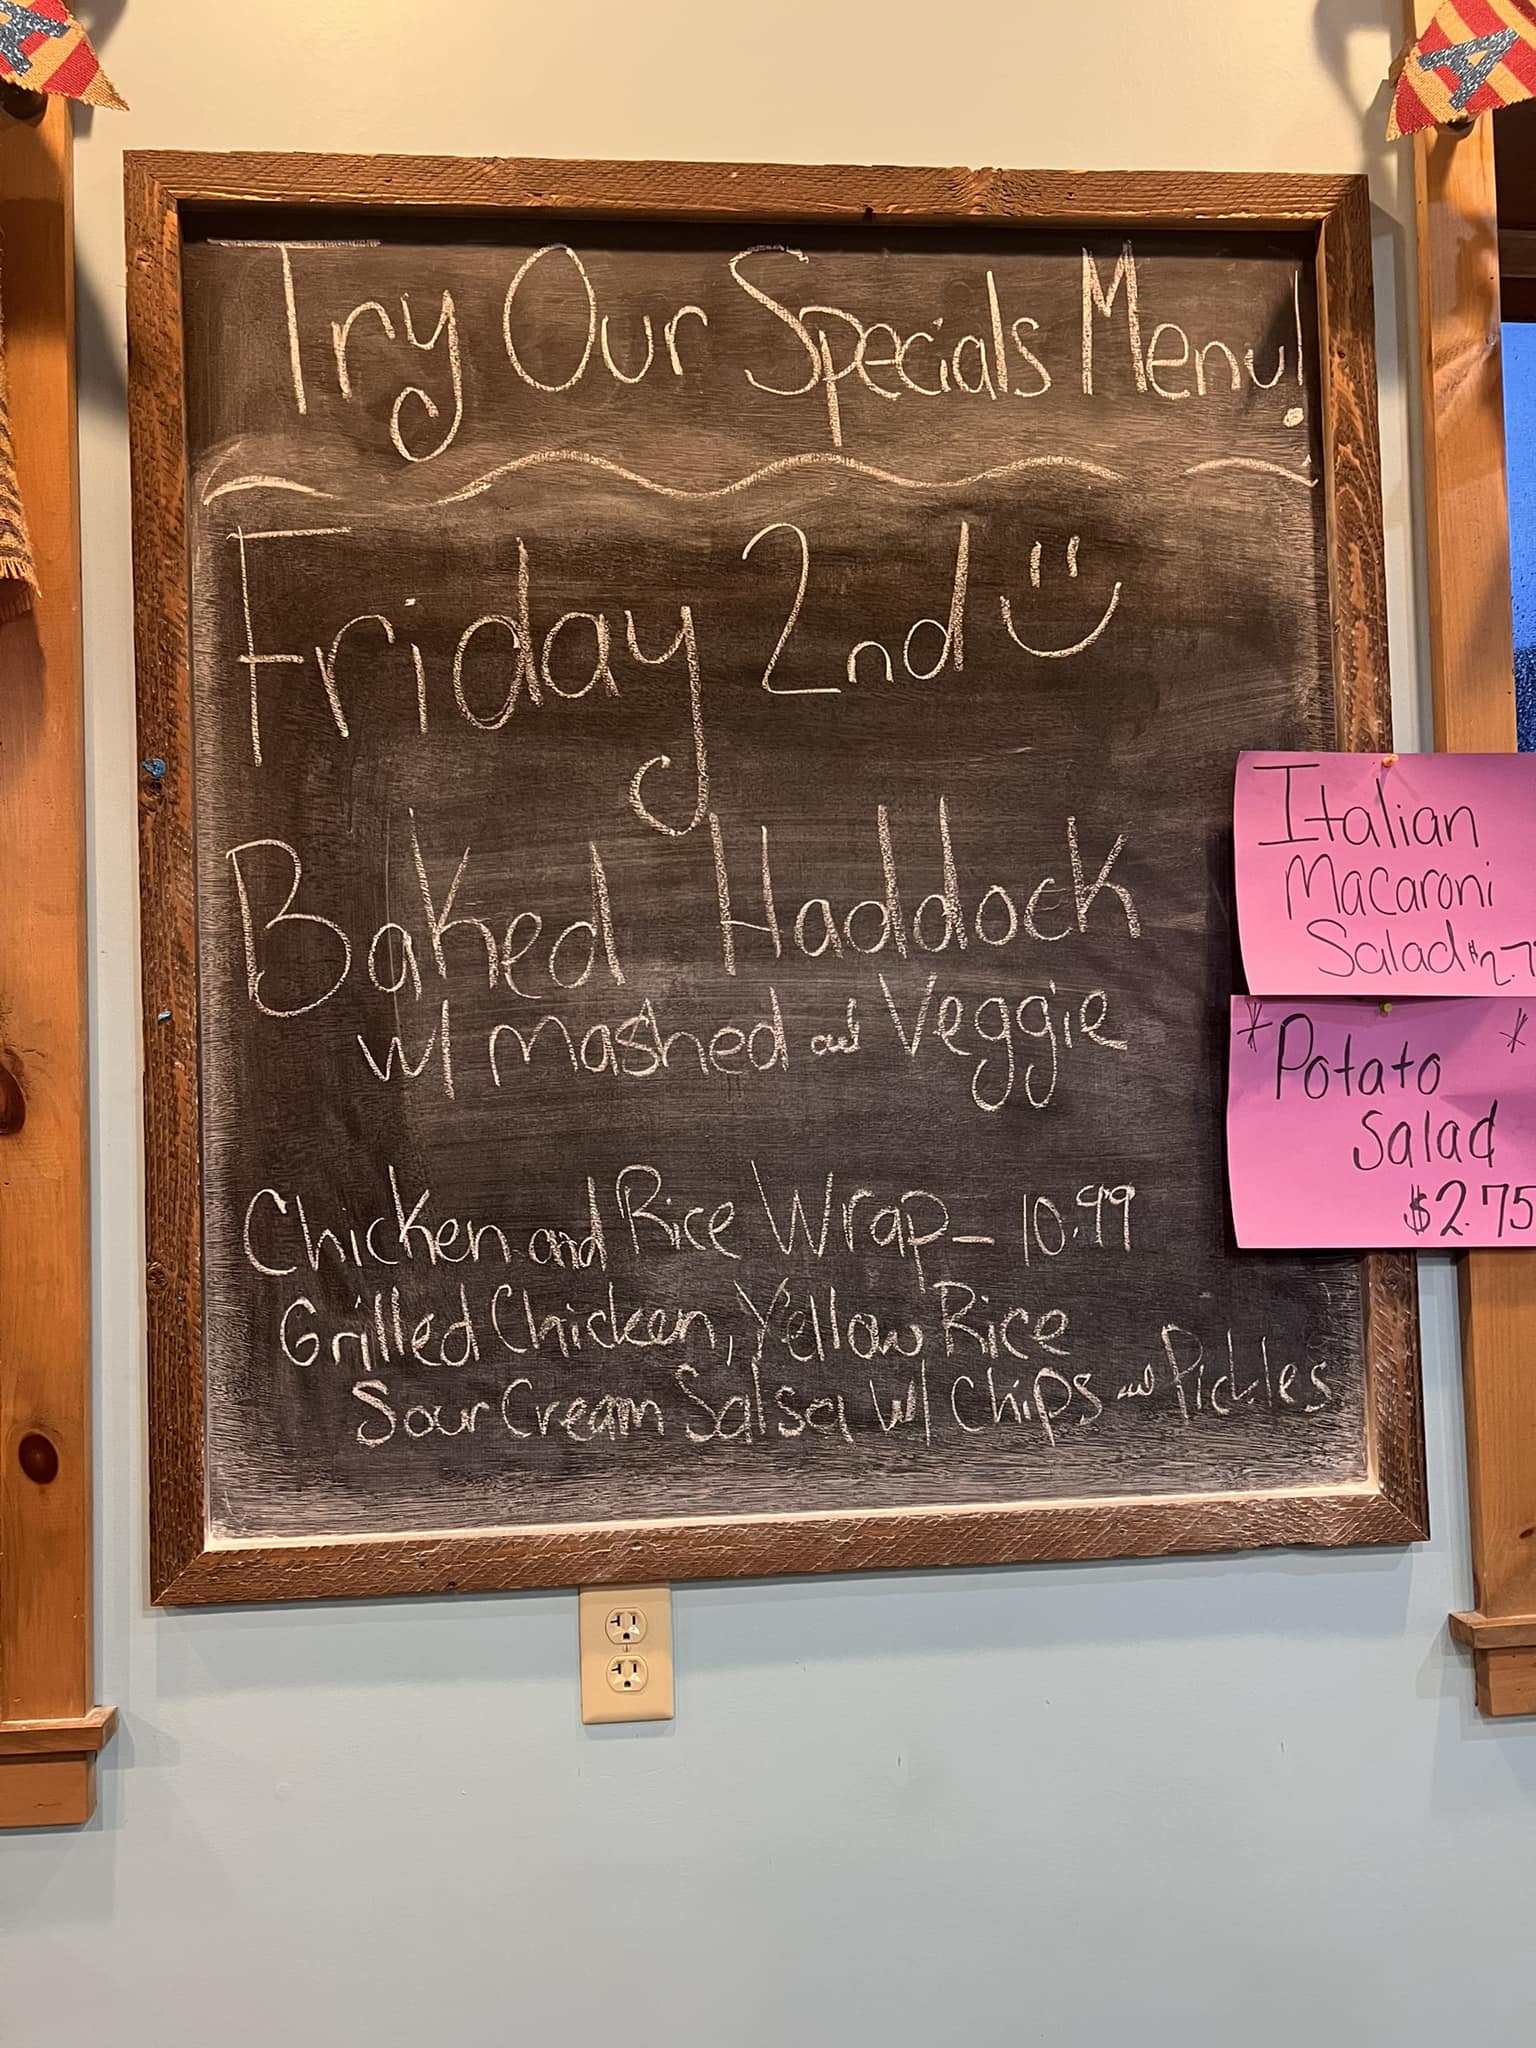 A
A
Try Our Specials Menu!
Friday 2nd
Baked Haddock
w/ Mashed and Veggie
Chicken and Rice Wrap - 10.99
Grilled Chicken, Yellow Rice
Sour Cream Salsa w/ Chips and Pickles
Italian
Macaroni
Salad $2.7
* Potato *
Salad
$2.75